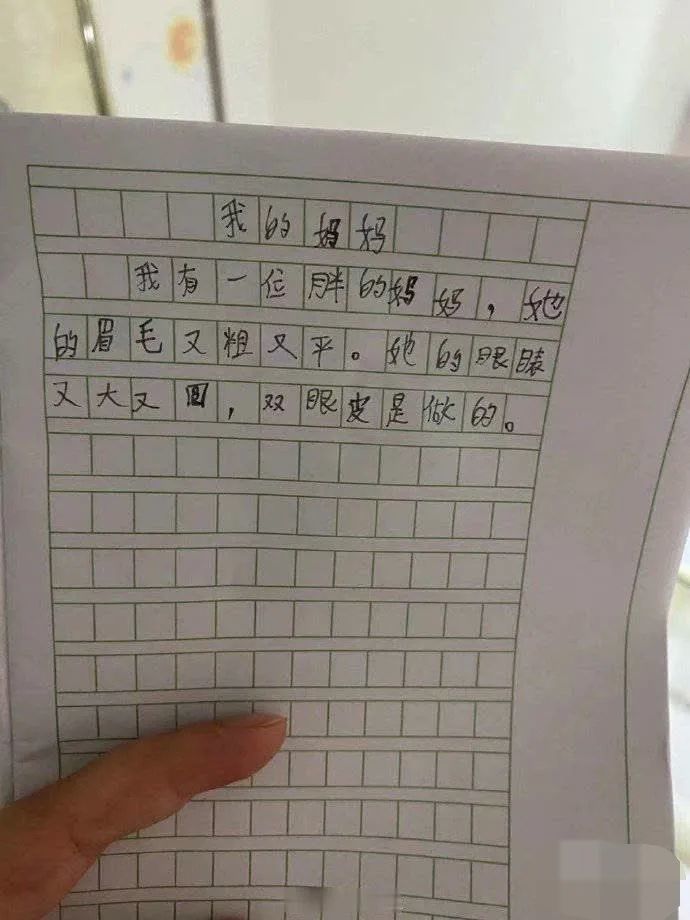 我的妈妈
我有一位胖的妈妈，她
的眉毛又粗又平。她的眼睛
又大又圆，双眼皮是做的。